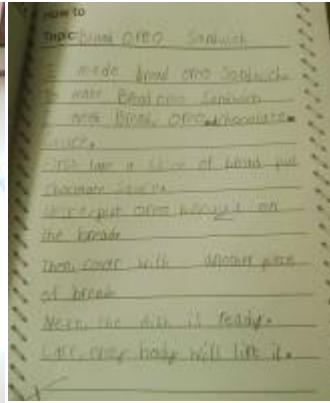 How to
Topic: bread oreo Sandwich
I made bread oreo Sandwich
To make Bread oreo Sandwich
I need Bread, Oreo chocolate
sauce.
First take a slice of bread put
chocolate sauce.
put oreo on
the bread.
Then cover with another piece
of bread
Next, the dish is ready.
Last, every body will like it.